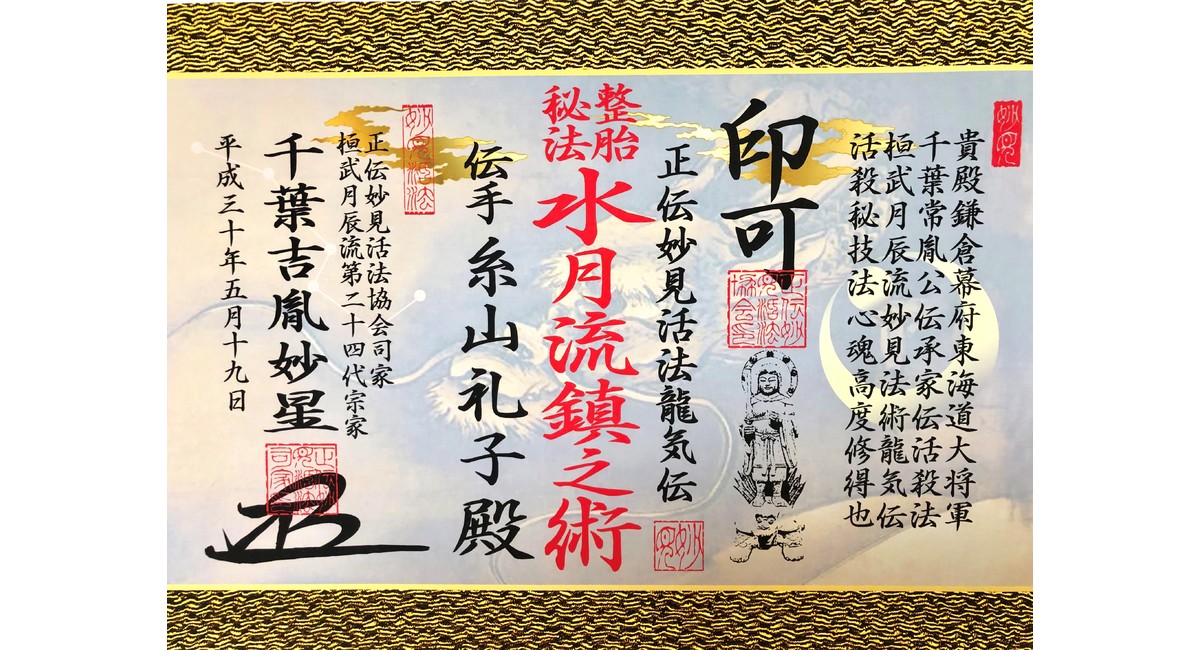 妙見
貴殿鎌倉幕府東海道大将軍
千葉常胤公伝承家伝活殺法
桓武月辰流妙見法術龍気伝
活殺秘技法心魂高度修得也
印可
正伝妙見活法協会印
正伝妙見活法龍気伝
妙見
整胎
秘法
水月流鎮之術
伝手糸山礼子殿
妙見活法
正伝妙見活法協会司家
桓武月辰流第二十四代宗家
千葉吉胤妙星
平成三十年五月十九日